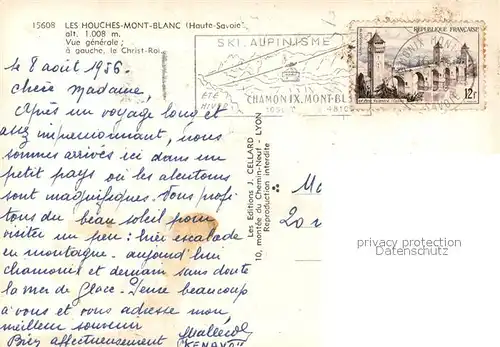 15608 LES HOUCHES-MONT-BLANC (Haute-Savoie
alt. 1.008 m.
Vue générale ;
à gauche, le Christ-Roi
le 8 août 1956.
Chère Madame,
Après un voyage long et
assez impressionnant, nous
sommes arrivés ici dans un
petit pays où les alentours
sont magnifiques. Nous profi
tons du beau soleil pour
visiter un peu : hier escalade
en montagne - aujourd'hui
chamonix et demain sans doute
la mer de Glace. Pense beaucoup
à vous et vous adresse mon
meilleur souvenir
Bien affectueusement
SKI. ALPINISME
ÉTÉ
HIVER
CHAMONIX. MONT-BL
RÉPUBLIQUE FRANÇAISE
12f
Les Editions J. CELLARD
10, montée du Chemin-Neuf - LYON
Reproduction interdite
20
privacy protection
(Datenschutz)